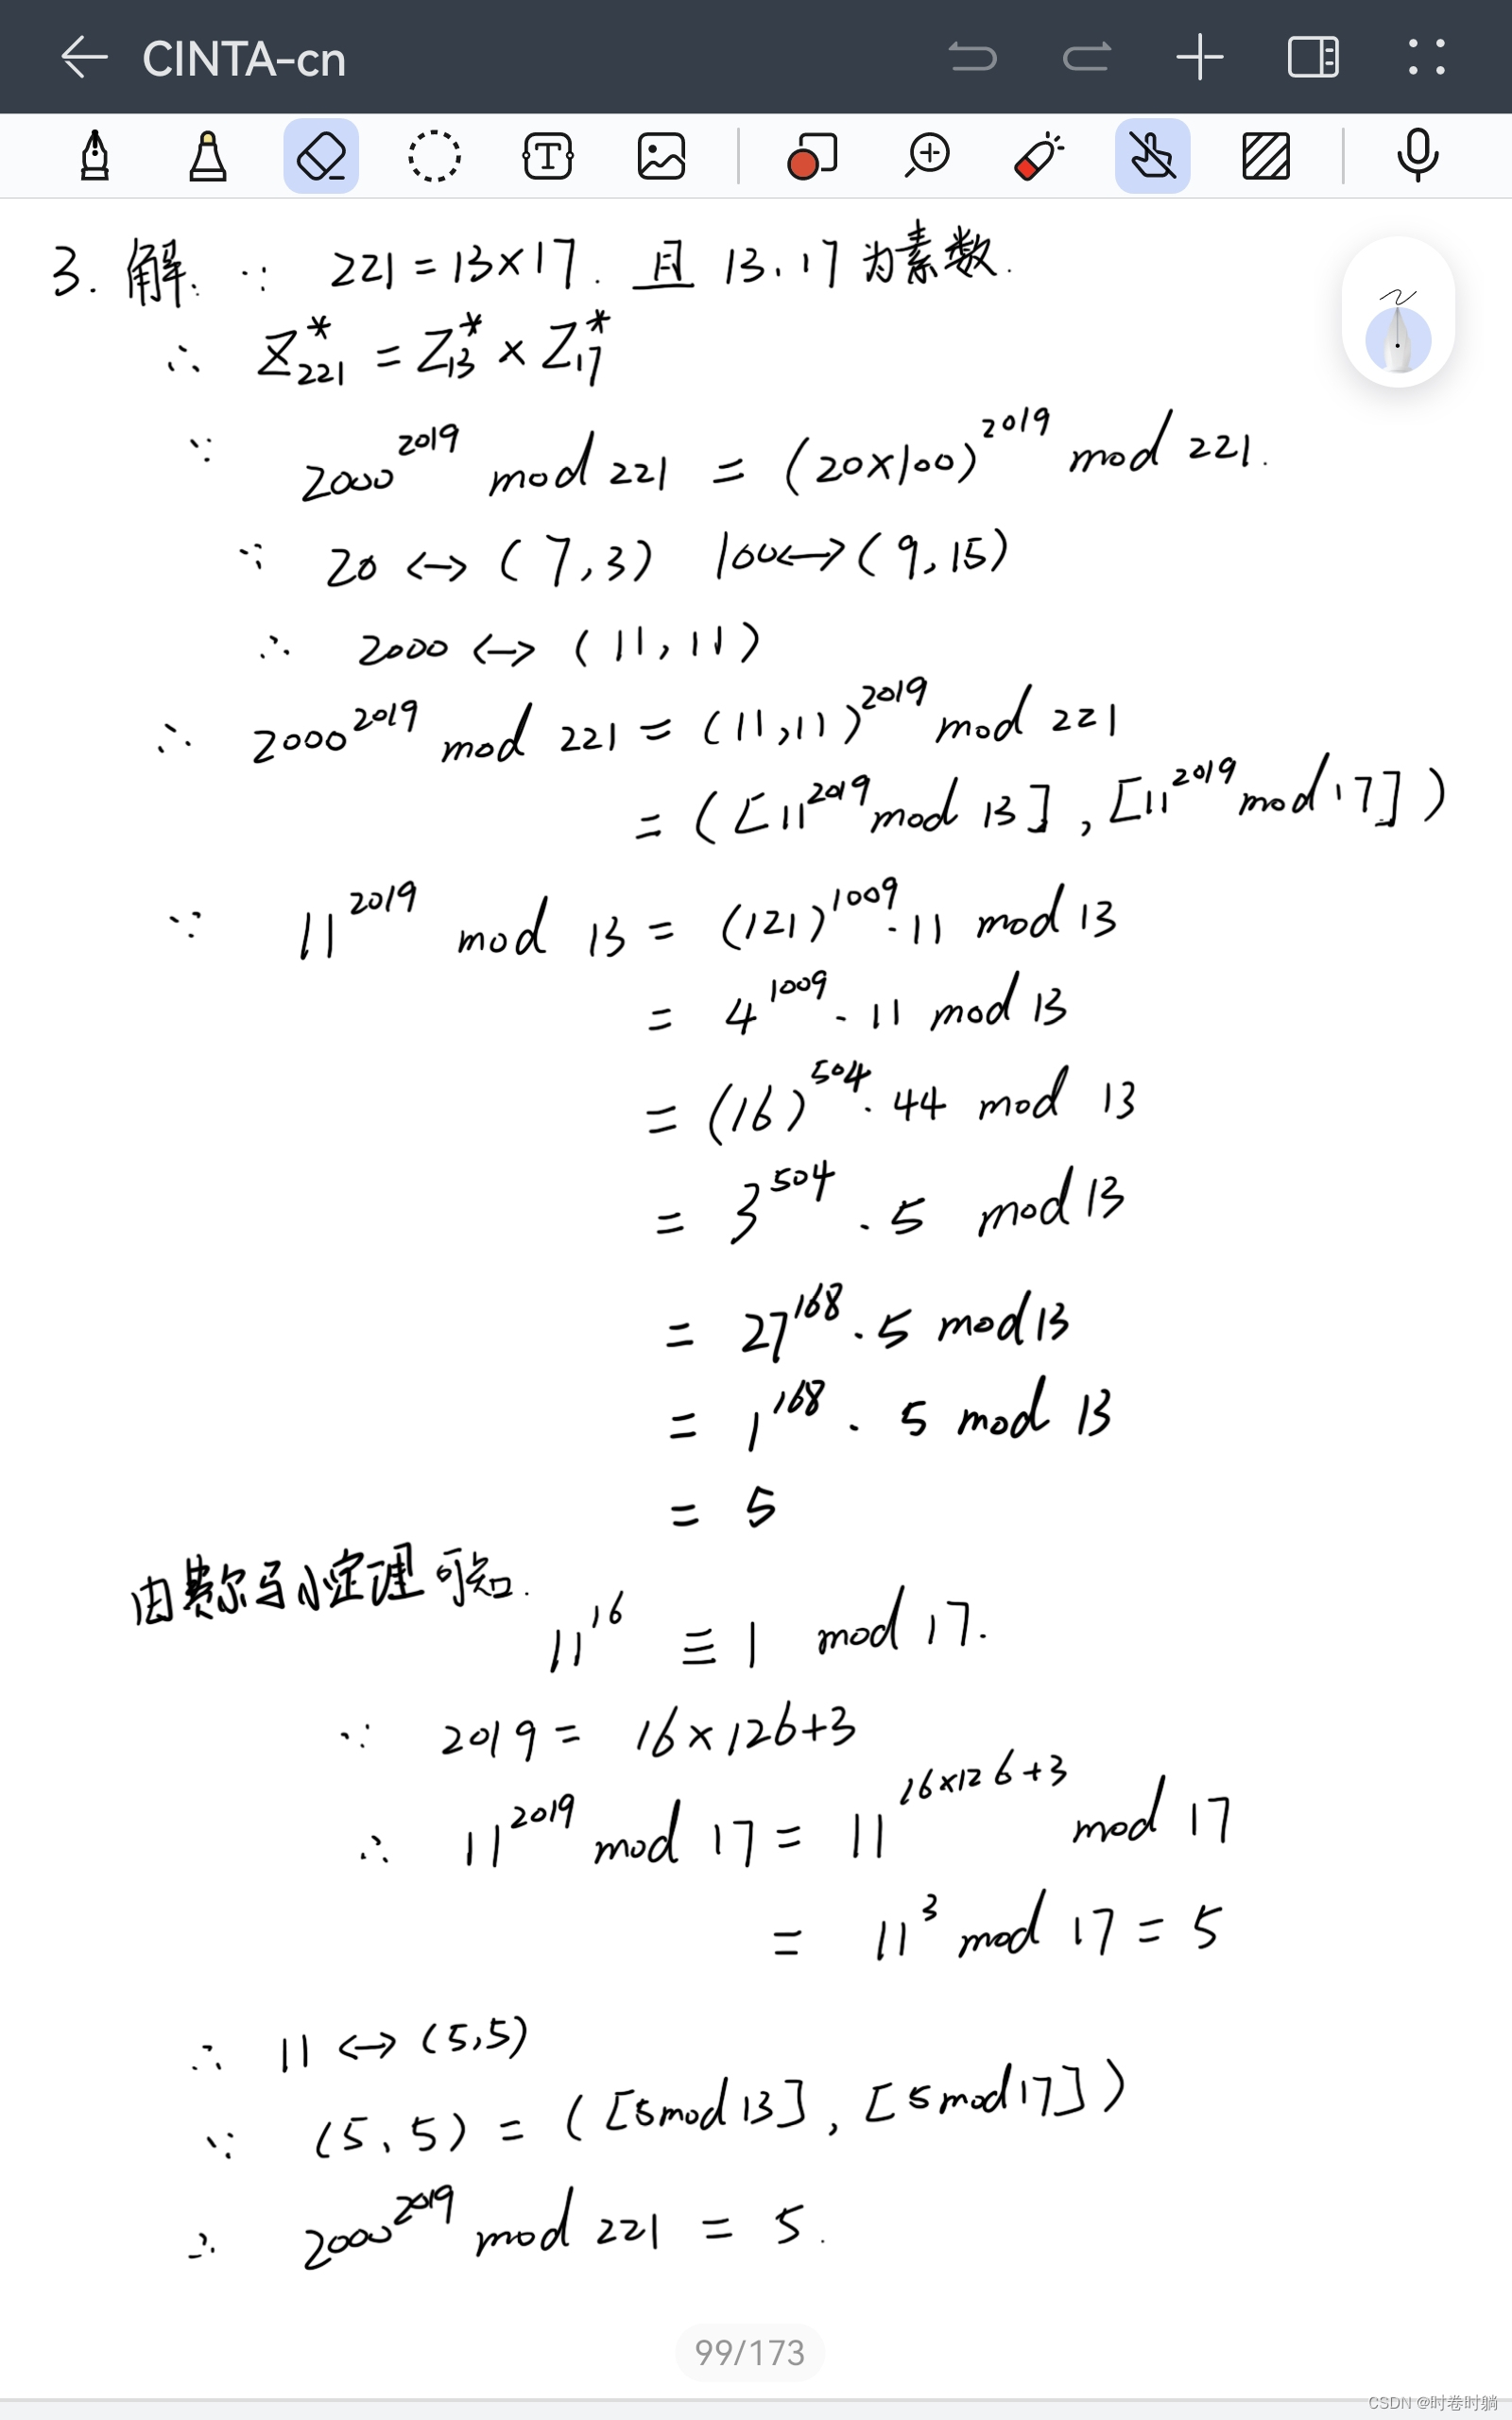 CINTA-cn
3. 解: ∵ 221 = 13×17. 且 13、17 为素数.
∴ Z*₂₂₁ = Z*₁₃ × Z*₁₇
∵ 2000^2019 mod 221 = (20×100)^2019 mod 221.
∵ 20 <-> (7,3) 100<->(9,15)
∴ 2000 <-> (11,11)
∴ 2000^2019 mod 221 = (11,11)^2019 mod 221
= ([11^2019 mod 13],[11^2019 mod 17])
∵ 11^2019 mod 13 = (121)^1009·11 mod 13
= 4^1009·11 mod 13
= (16)^504·44 mod 13
= 3^504·5 mod 13
= 27^168·5 mod 13
= 1^168·5 mod 13
= 5
由费尔马小定理可知.
11^16 ≡ 1 mod 17.
∵ 2019 = 16×126+3
∴ 11^2019 mod 17 = 11^16×126+3 mod 17
= 11^3 mod 17 = 5
∴ 11 <-> (5,5)
∵ (5、5) = ([5 mod 13],[5 mod 17])
∴ 2000^2019 mod 221 = 5.
99/173
CSDN @时卷时躺